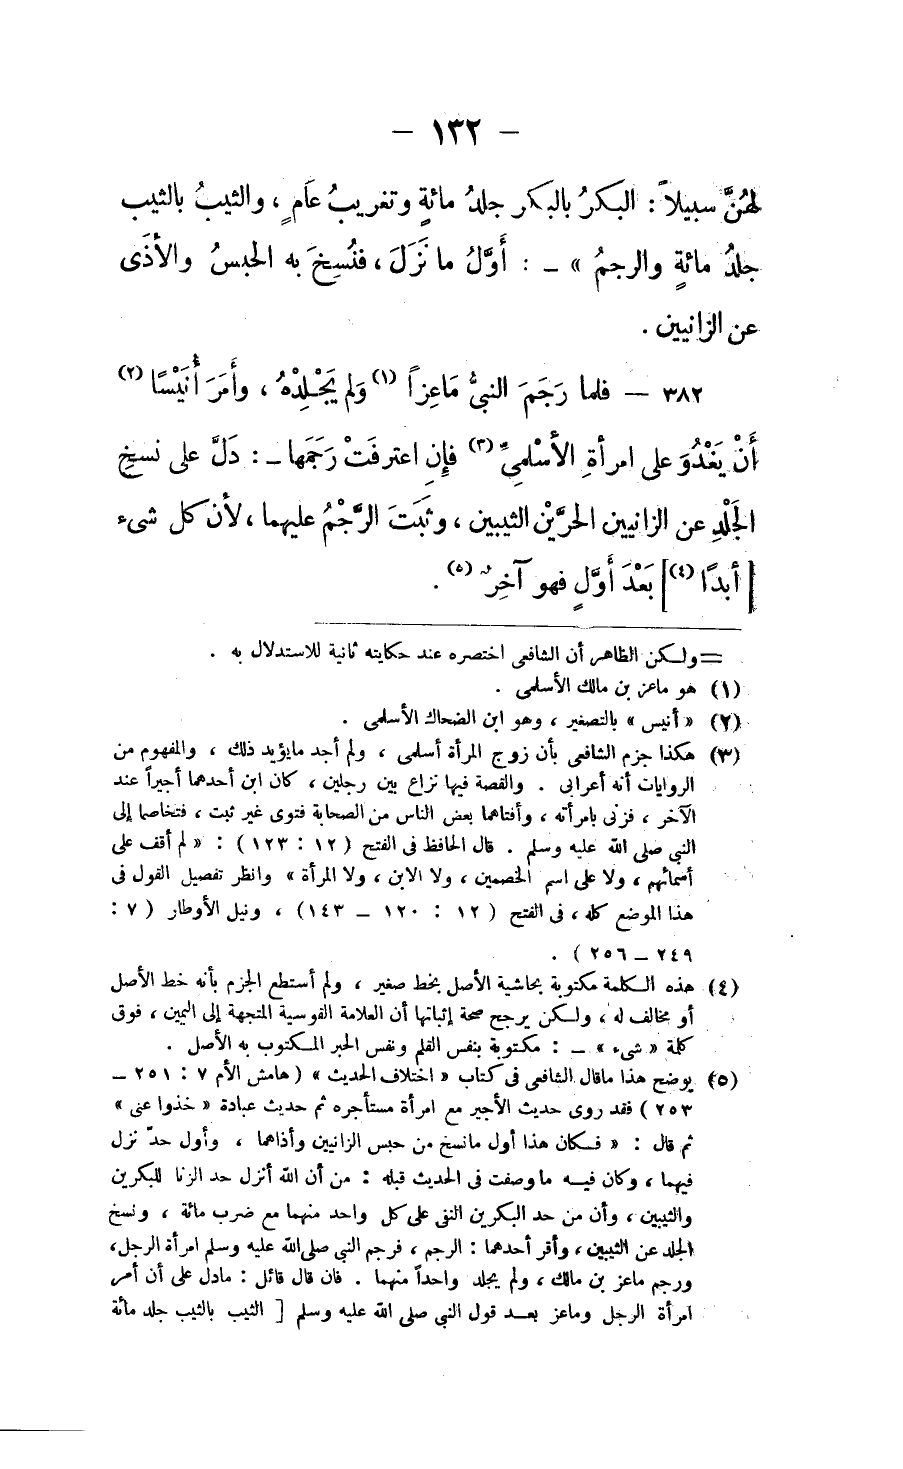 – ١٣٢ –
لهُنَّ سبيلاً : البكرُ بالبكر جلدُ مائةٍ وتغريبُ عَامٍ ، والثيبُ بالثيب
جلدُ مائةٍ والرجمُ » – : أَوَّلُ ما نَزَلَ ، فنُسِخَ به الحبسُ والأذَى
عن الزانيين .
٣٨٢ – فلما رَجَمَ النبيُّ مَاعِزاً (١) وَلم يَجْلِدْهُ ، وأَمَرَ أُنَيْسًا (٢)
أَنْ يَغْدُوَ على امرأةِ الأَسْلميِّ (٣) فإِنِ اعترفَتْ رَجَمَها – : دَلَّ على نسخِ
الجَلْدِ عن الزانيين الحرَّيْن الثيبين ، وثَبَتَ الرَّجْمُ عليهما ، لأن كل شىء
[ أبدًا (٤) ] بَعْدَ أَوَّلٍ فهو آخِرٌ (٥) .
= ولـكن الظاهر أن الشافعى اختصره عند حكايته ثانية للاستدلال به .
(١) هو ماعز بن مالك الأسلمى .
(٢) « أنيس » بالتصغير ، وهو ابن الضحاك الأسلمى .
(٣) هكذا جزم الشافعى بأن زوج المرأة أسلمى ، ولم أجد مايؤيد ذلك ، والمفهوم من
الروايات أنه أعرابى . والقصة فيها نزاع بين رجلين ، كان ابن أحدهما أجيراً عند
الآخر ، فزنى بامرأته ، وأفتاهما بعض الناس من الصحابة فتوى غير ثبت ، فتخاصما إلى
النبى صلى الله عليه وسلم . قال الحافظ فى الفتح ( ١٢ : ١٢٣ ) : « لم أقف على
أسمائهم ، ولا على اسم الخصمين ، ولا الابن ، ولا المرأة » وانظر تفصيل القول فى
هذا الموضع كله ، فى الفتح ( ١٢ : ١٢٠ – ١٤٣ ) ، ونيل الأوطار ( ٧ :
٢٤٩ – ٢٥٦ ) .
(٤) هذه الـكلمة مكتوبة بحاشية الأصل بخط صغير ، ولم أستطع الجزم بأنه خط الأصل
أو مخالف له ، ولـكن يرجح صحة إثباتها أن العلامة القوسية المتجهة إلى اليمين ، فوق
كلمة « شىء » – : مكتوبة بنفس القلم ونفس الحبر المـكتوب به الأصل .
(٥) يوضح هذا ماقال الشافعى فى كتاب « اختلاف الحديث » ( هامش الأم ٧ : ٢٥١ –
٢٥٣ ) فقد روى حديث الأجير مع امرأة مستأجره ثم حديث عبادة « خذوا عنى »
ثم قال : « فـكان هذا أول مانسخ من حبس الزانيين وأذاهما ، وأول حدّ نزل
فيهما ، وكان فيـه ما وصفت فى الحديث قبله : من أن الله أنزل حد الزنا للبكرين
والثيبين ، وأن من حد البكرين النفى على كل واحد منهما مع ضرب مائة ، ونسخ
الجلد عن الثيبين ، وأقر أحدهما : الرجم ، فرجم النبى صلى الله عليه وسلم امرأة الرجل ،
ورجم ماعز بن مالك ، ولم يجلد واحداً منهما . فان قال قائل : مادل على أن أمر
امرأة الرجل وماعز بعـد قول النبى صلى الله عليه وسلم [ الثيب بالثيب جلد مائة